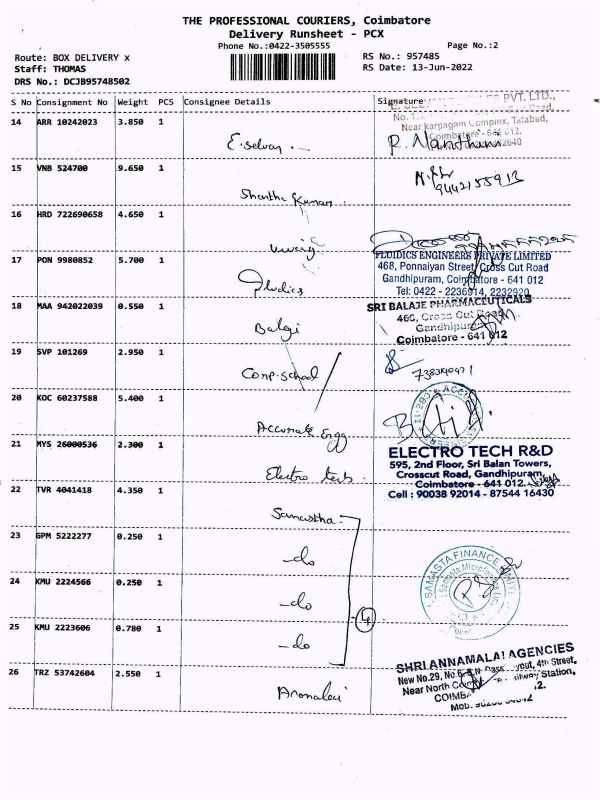 THE PROFESSIONAL COURIERS, Coimbatore
Delivery Runsheet - PCX
Phone No.:0422-3505555
Page No.:2
Route: BOX DELIVERY x
RS No.: 957485
Staff: THOMAS
RS Date: 13-Jun-2022
DRS No.: DCJB95748502
S No Consignment No Weight PCS Consignee Details Signature
PVT. LTD.,
Road,
14 ARR 10242023 3.850 1
Near karpagam Complex, Tatabad,
Coimbatore - 641 012.
E. selvan
15 VNB 524700 9.650 1
9442155913
16 HRD 722690658 4.650 1
17 PON 9980852 5.700 1
FLUIDICS ENGINEERS PRIVATE LIMITED
468, Ponnaiyan Street, Cross Cut Road
Gandhipuram, Coimbatore - 641 012
Tel: 0422 - 2236914, 2232920
Fludics
18 MAA 942022039 0.550 1
SRI BALAJE PHARMACEUTICALS
466, Cross Cut Road
Gandhipuram
Coimbatore - 641 012
Balaji
19 SVP 101269 2.950 1
Corp. school
20 KOC 60237588 5.400 1
Accurate Engg
21 MYS 26000536 2.300 1
ELECTRO TECH R&D
595, 2nd Floor, Sri Balan Towers,
Crosscut Road, Gandhipuram,
Coimbatore - 641 012.
Cell : 90038 92014 - 87544 16430
Electro tech
22 TVR 4041418 4.350 1
Samastha
23 GPM 5222277 0.250 1
-do
SAMASTA FINANCE LIMITED
24 KMU 2224566 0.250 1
-do
4
25 KMU 2223606 0.780 1
-do
26 TRZ 53742604 2.550 1
SHRI ANNAMALAI AGENCIES
New No.29, No.6, 4th Street,
Near North Railway Station,